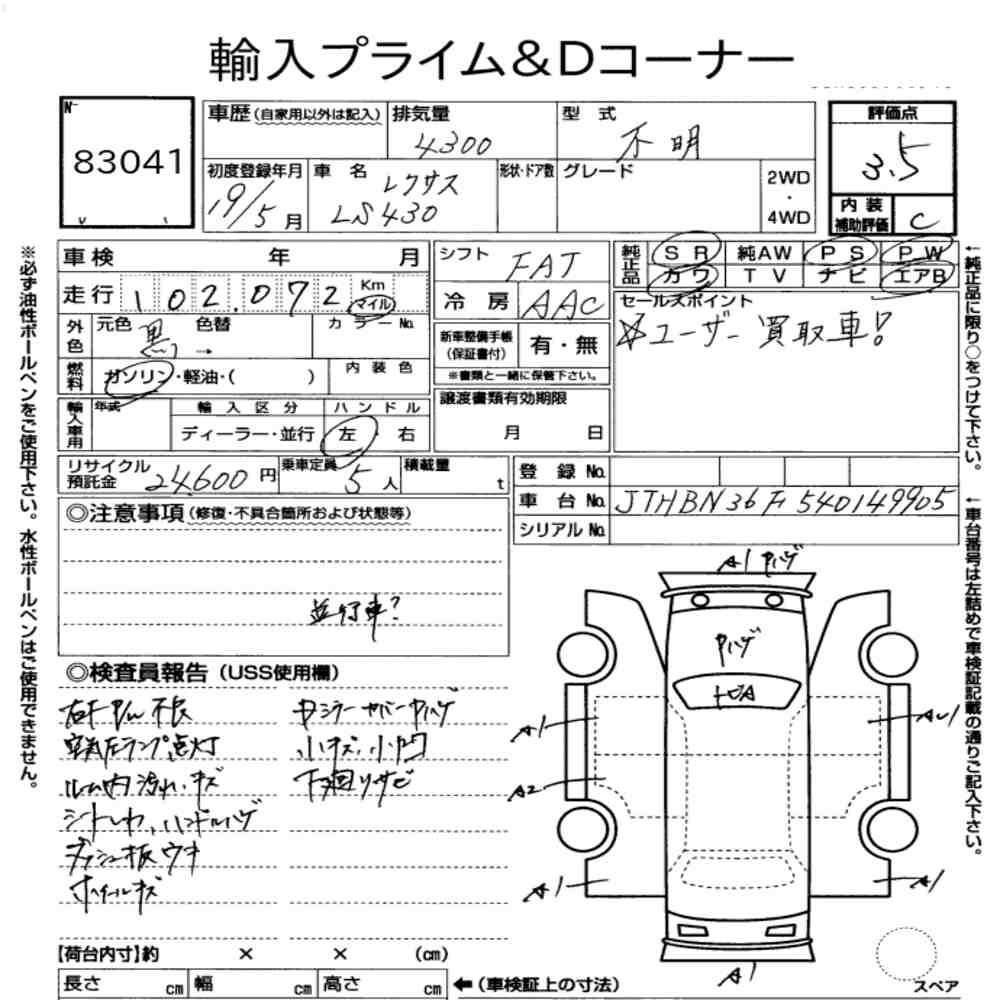 輸入プライム&Dコーナー
N-
83041
車歴(自家用以外は記入)
排気量
4300
型式
不明
評価点
3.5
初度登録年月
19/5月
車名
レクサス
LS430
形状・ドア数
グレード
2WD
・
4WD
内装
補助評価
C
車検 年 月
走行 102.072 Km
マイル
外色
元色 黒 → 色替
カラーNo.
燃料
ガソリン・軽油・( )
内装色
輸入車用
年式
輸入区分
ディーラー・並行
ハンドル
左・右
シフト FAT
冷房 AAC
新車整備手帳
(保証書付)
有・無
※書類と一緒に保管下さい。
譲渡書類有効期限
月 日
純正品
SR 純AW PS PW
カワ TV ナビ エアB
セールスポイント
☆ユーザー買取車!
※必ず油性ボールペンをご使用下さい。水性ボールペンはご使用できません。
←純正品に限り○をつけて下さい。
←車台番号は左詰めで車検証記載の通りご記入下さい。
リサイクル
預託金
24,600円
乗車定員
5人
積載量
t
登録No.
車台No. JTHBN36F540149905
シリアルNo.
◎注意事項(修復・不具合箇所および状態等)
並行車?
◎検査員報告(USS使用欄)
空気圧ランプ点灯
ルーム内汚れ、キズ
シートしわ、ハンドルハゲ
ダッシュ板ウキ
ホイールキズ
小キズ、小凹
下廻りサビ
A1
A1
A2
A1
A1
A1
【荷台内寸】約 × × (cm)
長さ cm 幅 cm 高さ cm
←(車検証上の寸法)
スペア